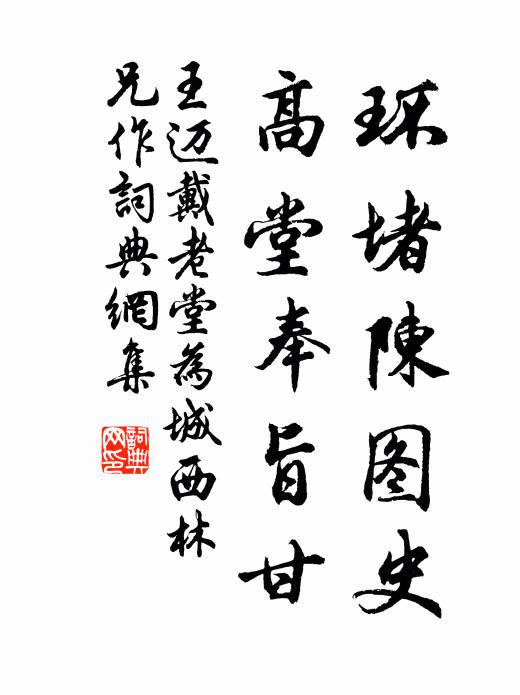 环堵陳图史
高堂奉旨甘
王迈戴老堂為城西林
兄作詞典網集
詞典网印